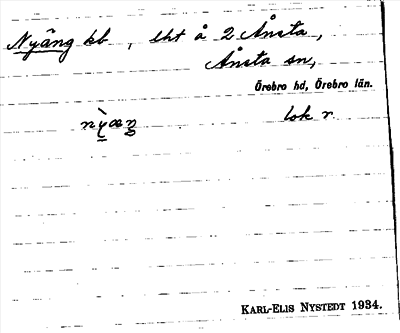 Nyäng kb, lht å 2 Ånsta,
Ånsta sn,
Örebro hd, Örebro län.
nỳæŋ lok r.
KARL-ELIS NYSTEDT 1934.